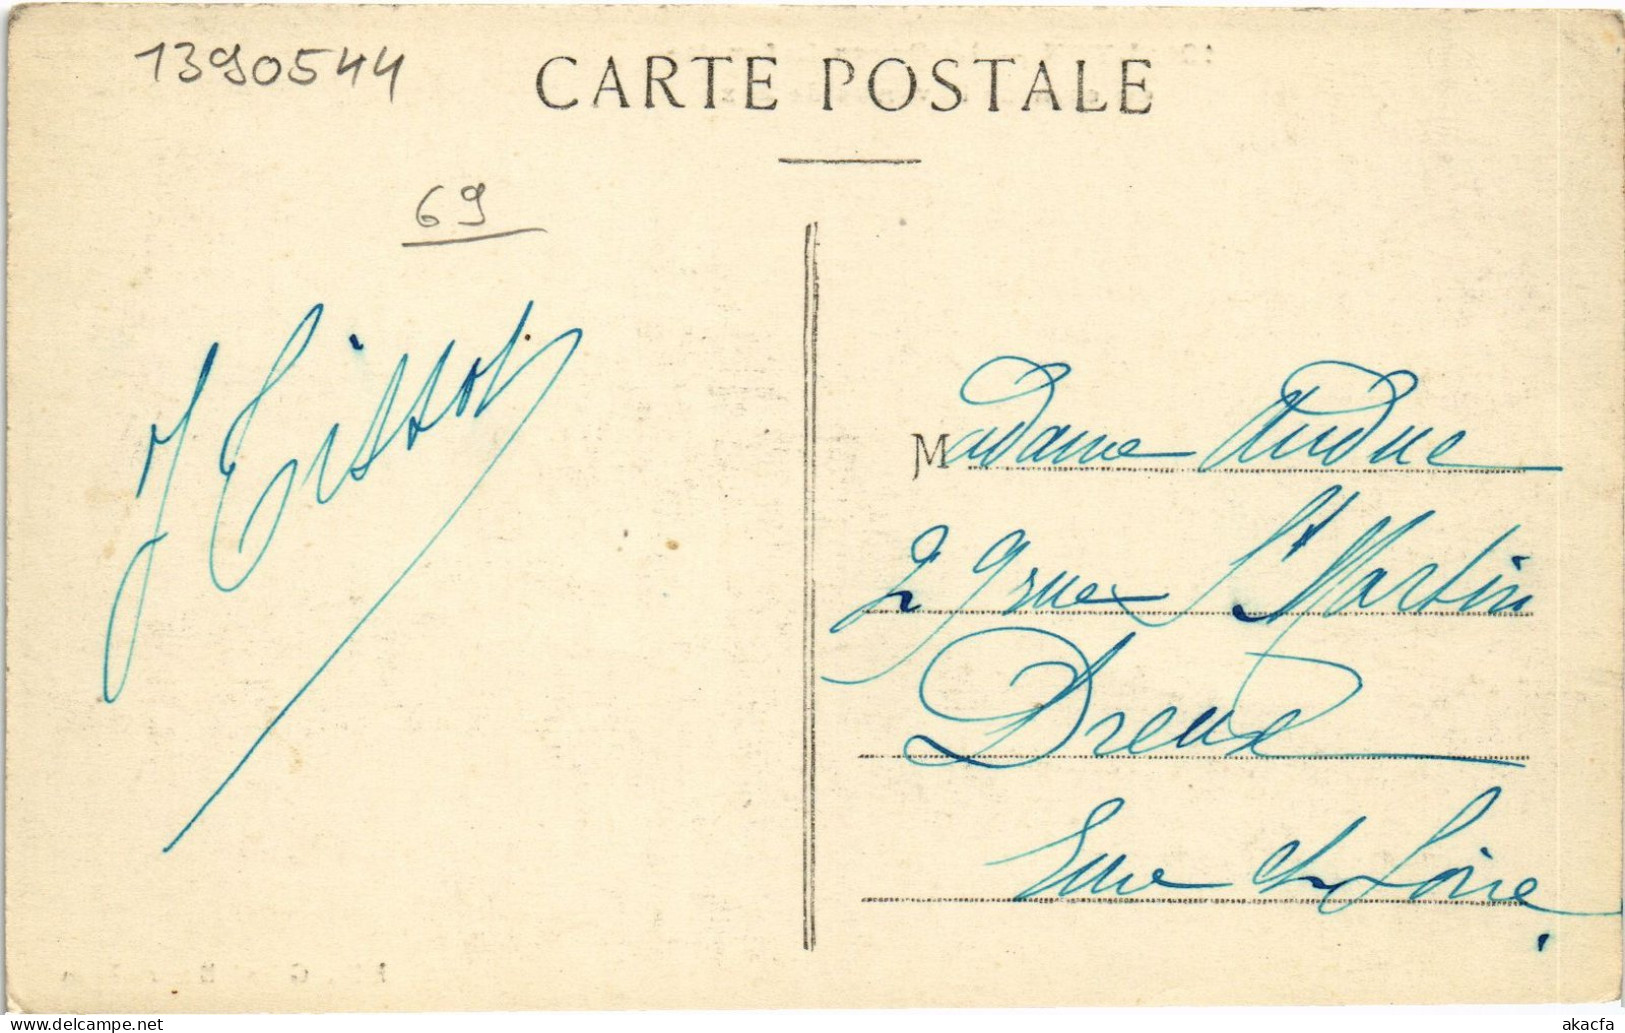 1390544
CARTE POSTALE
69
J Tissot
Madame Auduc
29 rue St Martin
Dreux
Eure et Loire
akacfa
www.delcampe.net